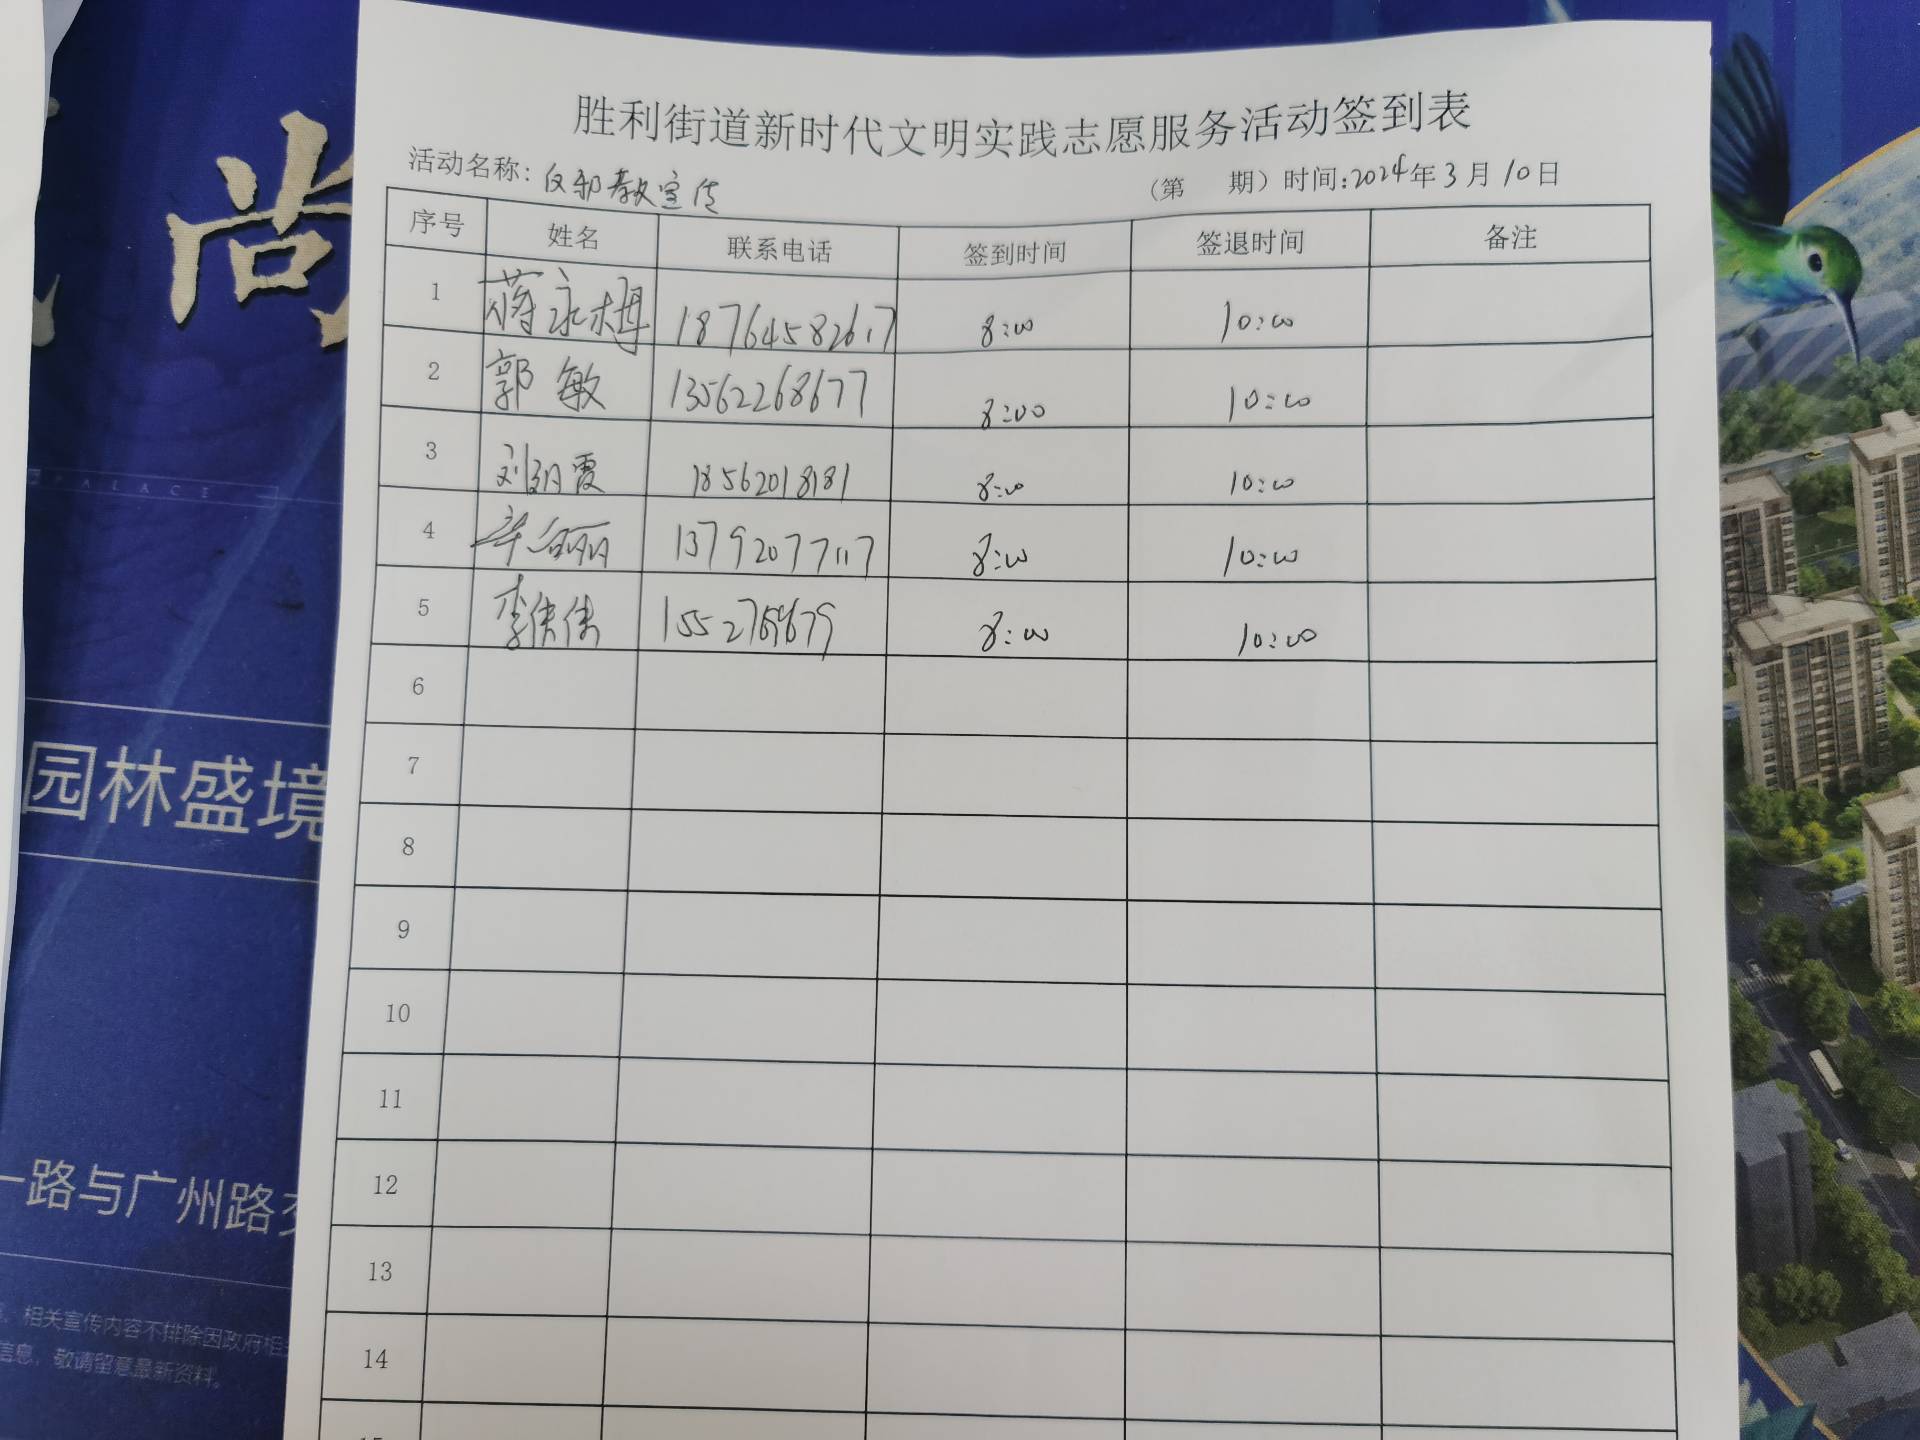 胜利街道新时代文明实践志愿服务活动签到表
活动名称：反邪教宣传 （第 期）时间：2024年3月10日
序号 姓名 联系电话 签到时间 签退时间 备注
1 蒋永梅 18764582617 8:00 10:00
2 郭敏 13562268677 8:00 10:00
3 刘玥霞 18562018181 8:00 10:00
4 8:00 10:00
5 李倩倩 8:00 10:00
6
7
8
9
10
11
12
13
14
15
尚
PALACE
园林盛境
一路与广州路
相关宣传内容不排除因政府相
信息，敬请留意最新资料。